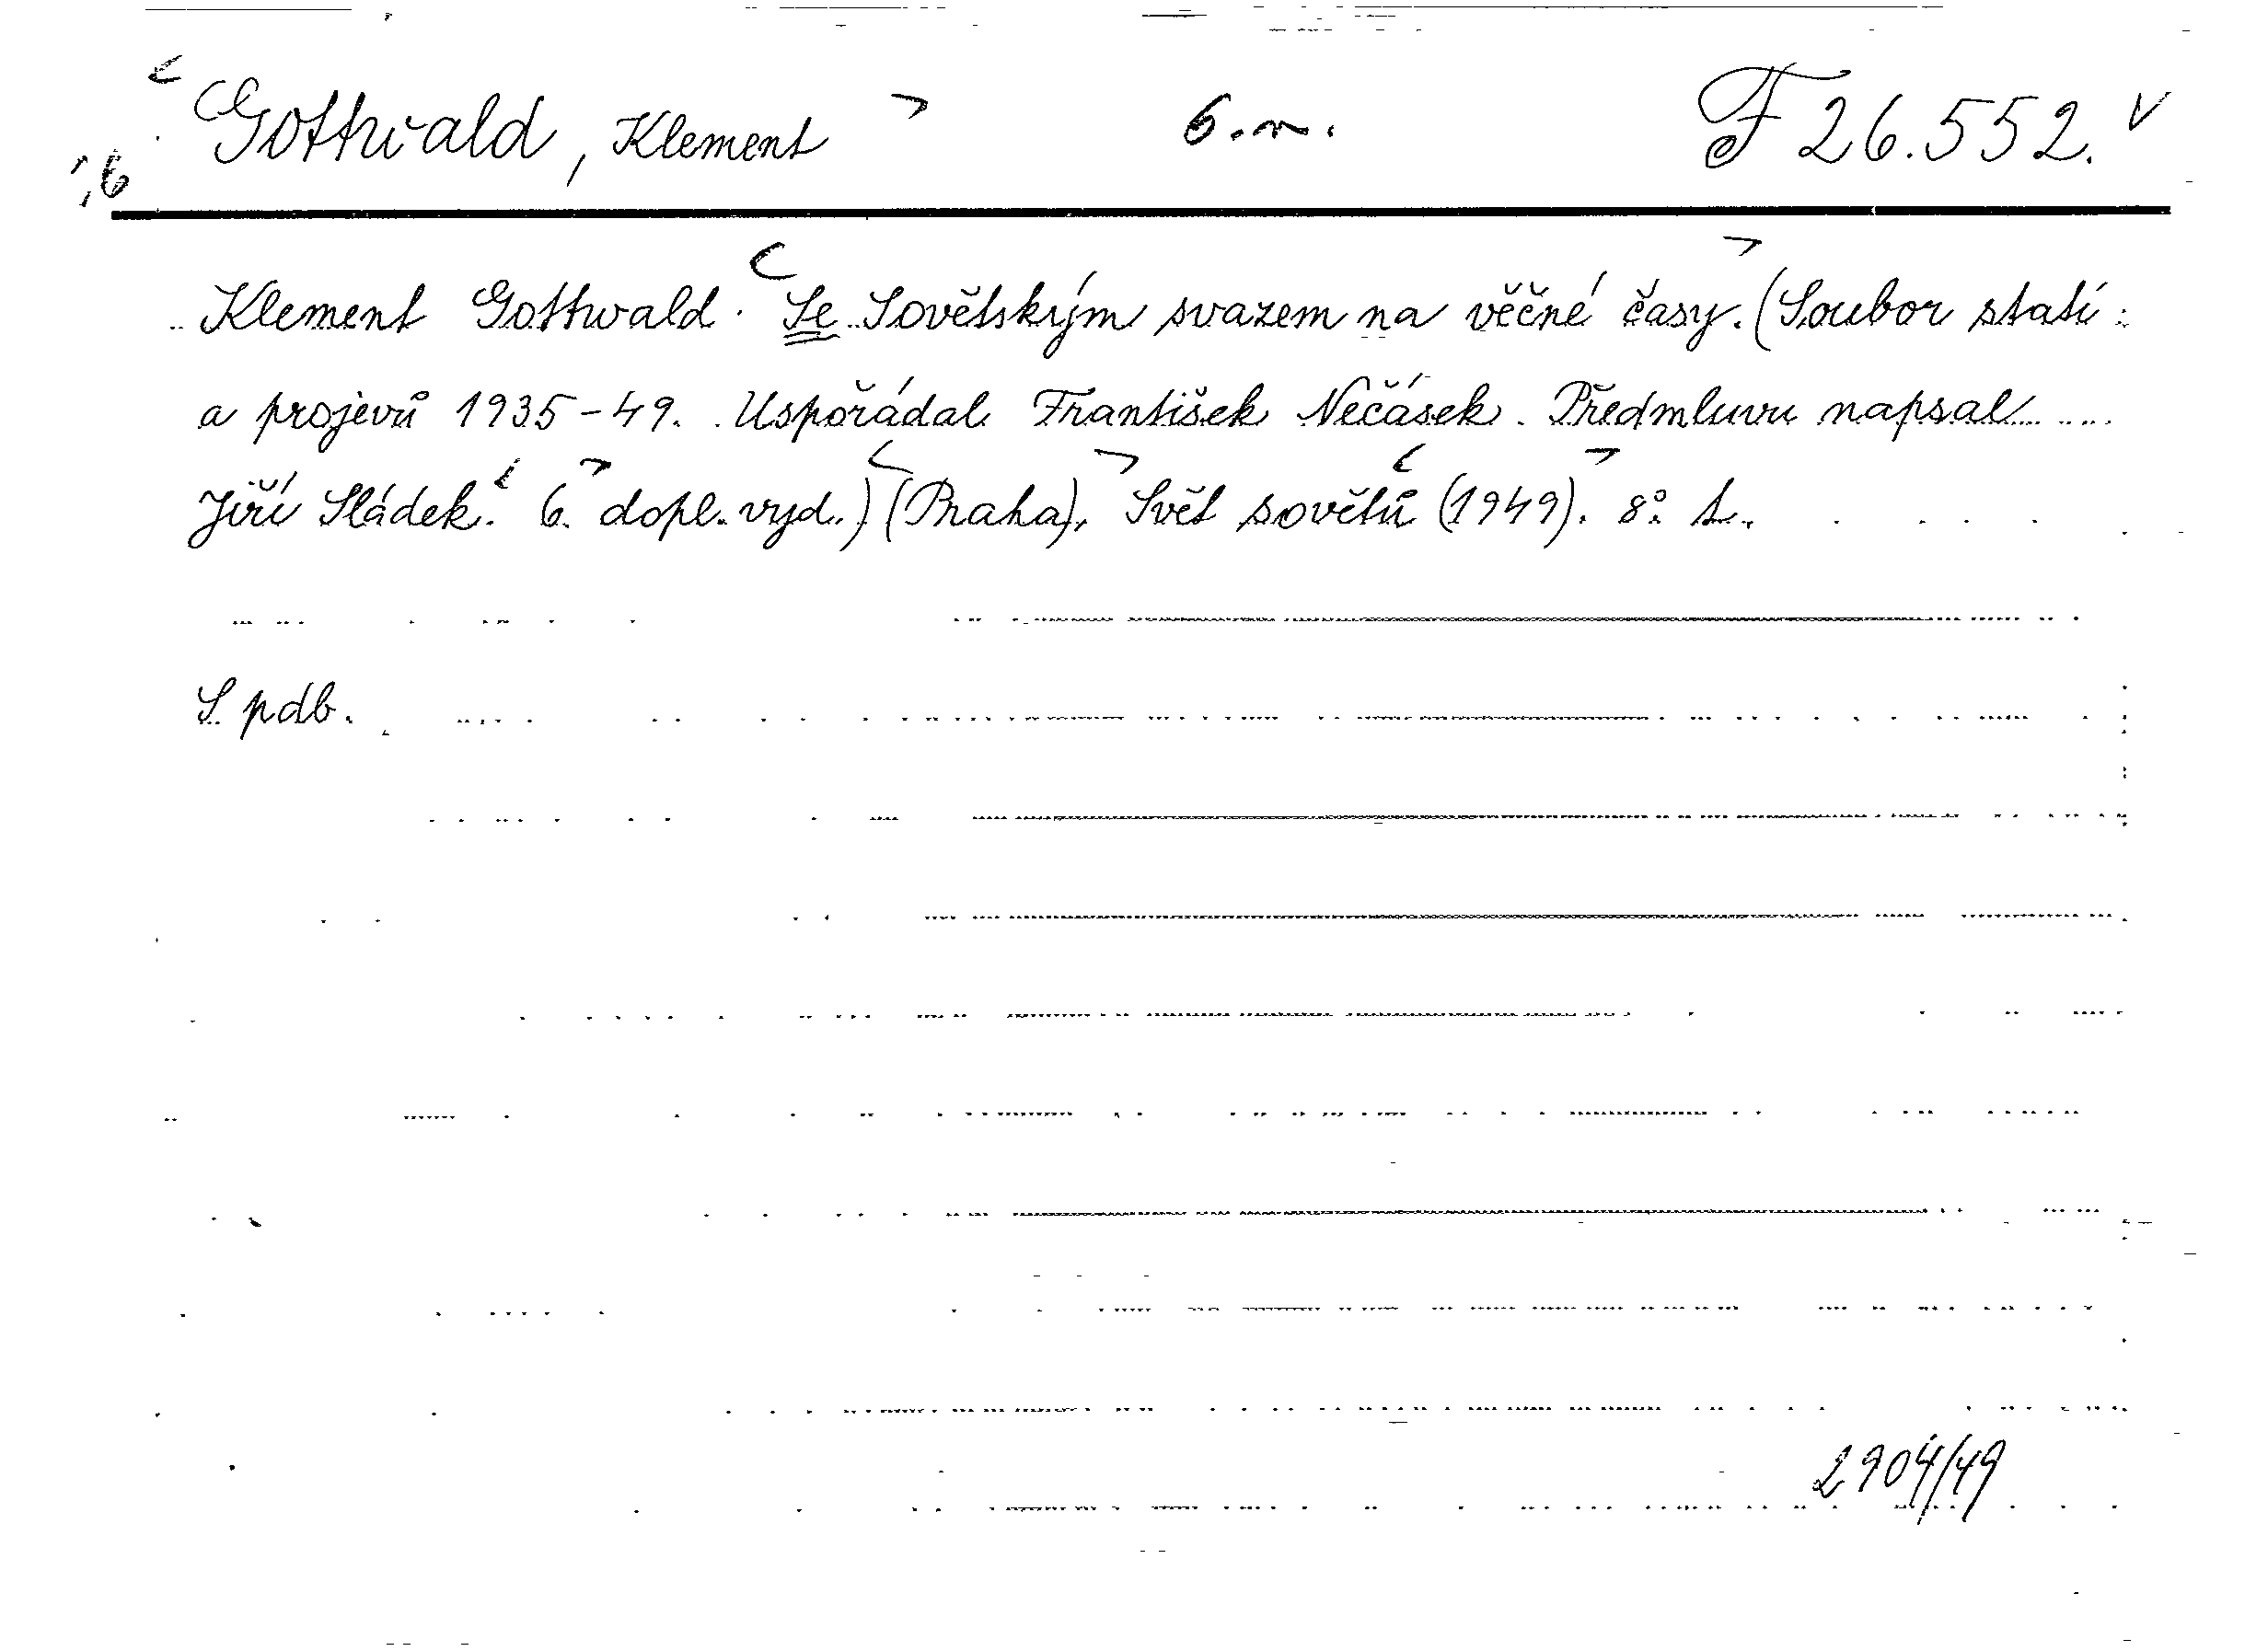 Gottwald, Klement 6.n. F 26.552. v
Klement Gottwald. Se Sovětským svazem na věčné časy. (Soubor statí
a projevů 1935-49. Uspořádal František Nečásek. Předmluvu napsal
Jiří Sládek. 6. dopl. vyd.) (Praha), Svět sovětů (1949). 8°.
S pdb.
2904/49